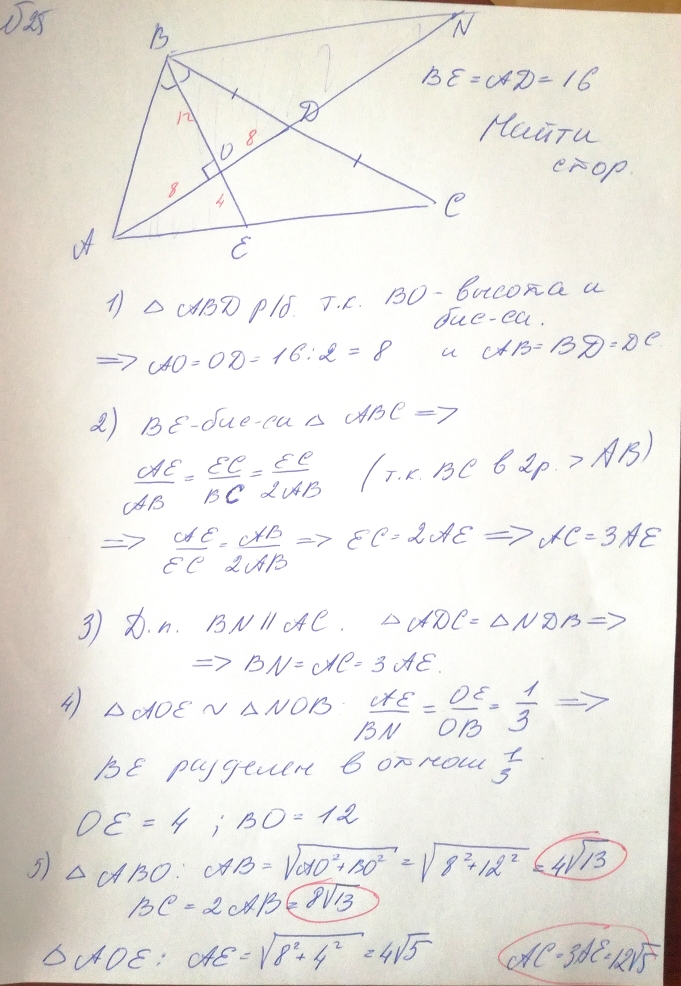 №25
B
N
BE = AD = 16
12
D
Найти
стор.
O
8
8
4
A
E
C
1) △ ABD р/б. т.к. BO - высота и
бис-са.
=> AO = OD = 16 : 2 = 8 и AB = BD = DC
2) BE - бис-са △ ABC =>
AE/AB = EC/BC = EC/2AB (т.к. BC в 2р. > AB)
=> AE/EC = AB/2AB => EC = 2AE => AC = 3AE
3) Д.п. BN || AC. △ ADC = △ NDB =>
=> BN = AC = 3AE.
4) △ AOE ~ △ NOB AE/BN = OE/OB = 1/3 =>
BE разделен в отнош 1/3
OE = 4 ; BO = 12
5) △ ABO: AB = √AO²+BO² = √8²+12² = 4√13
BC = 2AB = 8√13
△ AOE: AE = √8²+4² = 4√5 AC = 3AE = 12√5